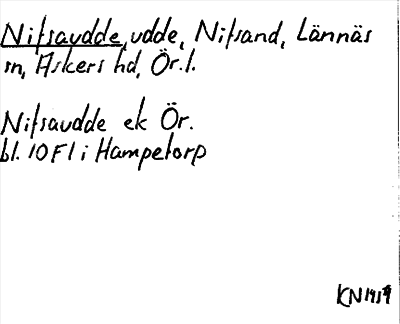 Nifsaudde, udde, Nifsand, Lännäs
sn, Askers hd, Ör.l.
Nifsaudde ek Ör.
bl. 10 F1 i Hampetorp